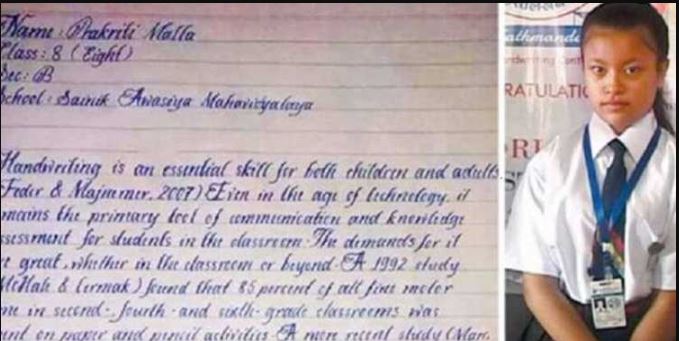 Name : Prakriti Malla
Class : 8 (Eight)
Sec : B
School : Sainik Awasiya Mahavidyalaya
Handwriting is an essential skill for both children and adults.
(Feder & Majnemer, 2007) Even in the age of technology, it
remains the primary tool of communication and knowledge
assessment for students in the classroom. The demands for it
are great, whether in the classroom or beyond. A 1992 study
(McHale & Cermak) found that 85 percent of all fine motor
time in second-, fourth- and sixth- grade classrooms was
spent on paper and pencil activities. A more recent study (Marr,
athmandu
RATULATIO